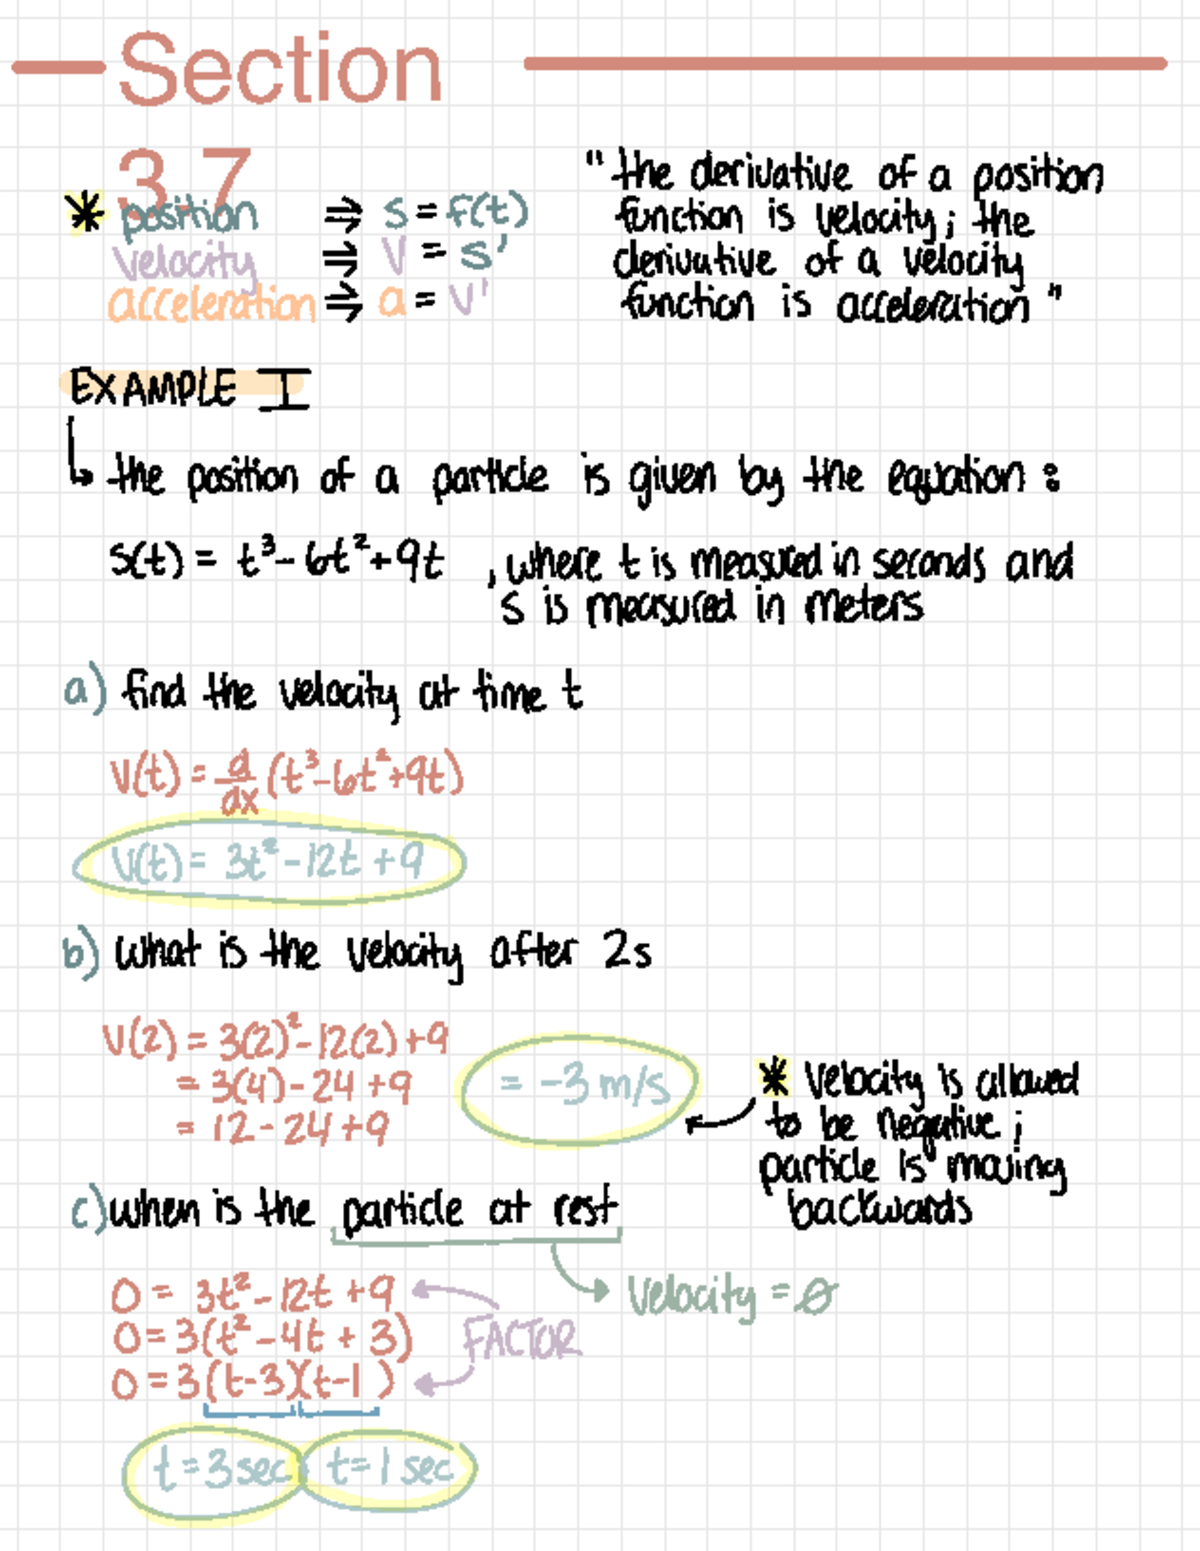 Section
3.7
* position ⇒ s = f(t)
velocity ⇒ v = s'
acceleration ⇒ a = v'
" the derivative of a position
function is velocity; the
derivative of a velocity
function is acceleration "
EXAMPLE I
↳ the position of a particle is given by the equation :
s(t) = t³ - 6t² + 9t , where t is measured in seconds and
s is measured in meters
a) find the velocity at time t
v(t) = d/dx (t³ - 6t² + 9t)
v(t) = 3t² - 12t + 9
b) what is the velocity after 2s
v(2) = 3(2)² - 12(2) + 9
= 3(4) - 24 + 9
= 12 - 24 + 9
= -3 m/s
* velocity is allowed
to be negative ;
particle is moving
backwards
c) when is the particle at rest
velocity = 0
0 = 3t² - 12t + 9
0 = 3(t² - 4t + 3)
FACTOR
0 = 3(t-3)(t-1)
t = 3 sec t = 1 sec